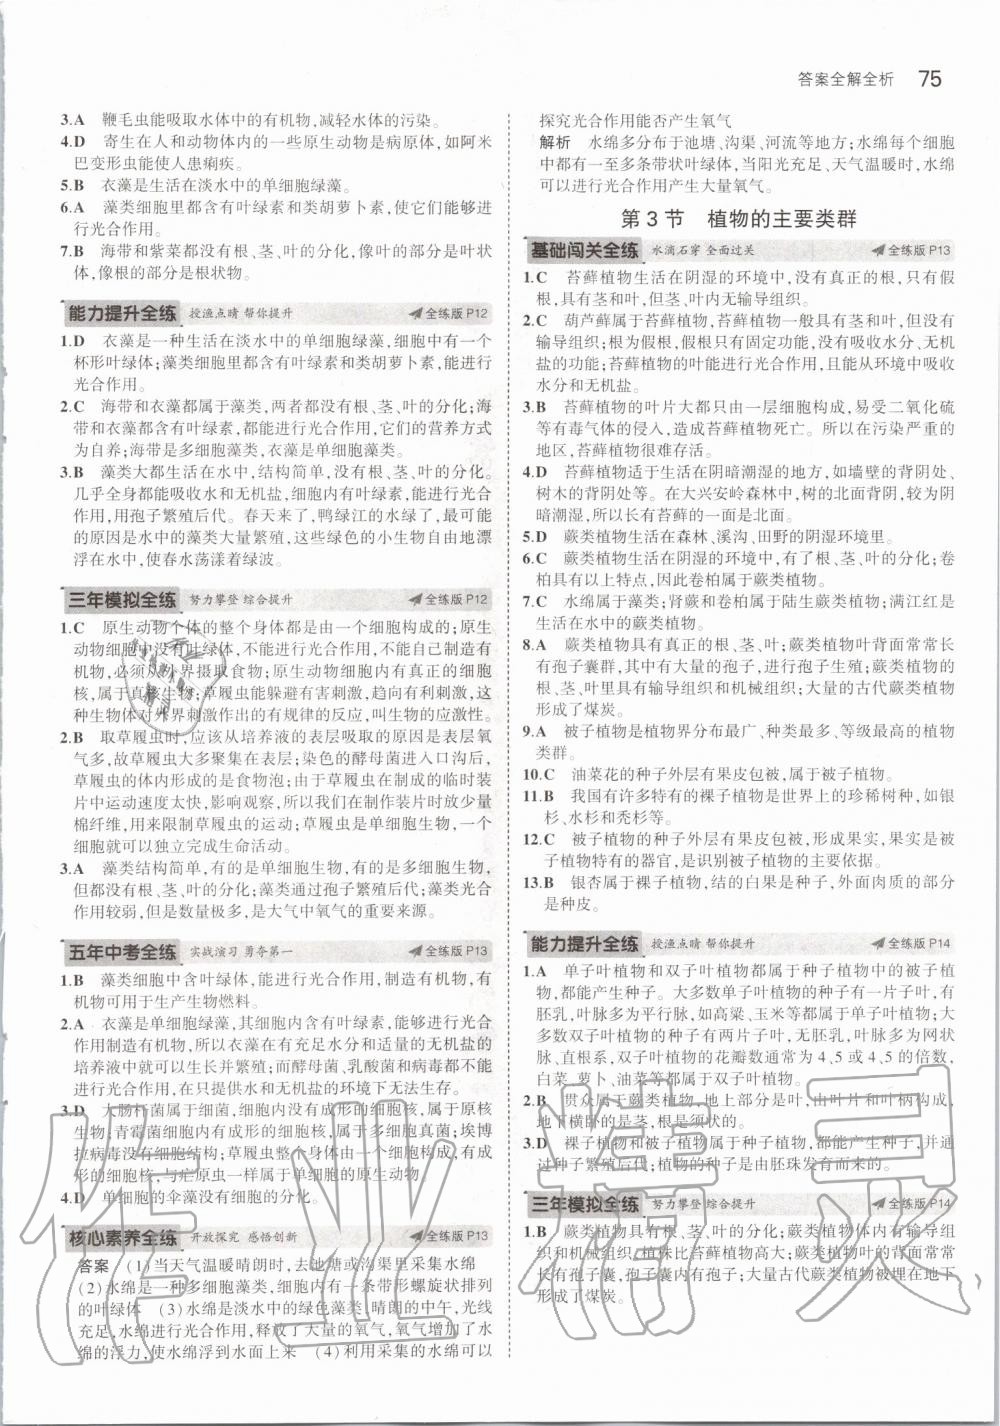 答案全解全析 75
3.A 鞭毛虫能吸取水体中的有机物,减轻水体的污染。
4.D 寄生在人和动物体内的一些原生动物是病原体,如阿米
巴变形虫能使人患痢疾。
5.B 衣藻是生活在淡水中的单细胞绿藻。
6.A 藻类细胞里都含有叶绿素和类胡萝卜素,使它们能够进
行光合作用。
7.B 海带和紫菜都没有根、茎、叶的分化,像叶的部分是叶状
体,像根的部分是根状物。
能力提升全练 授渔点睛 帮你提升 全练版 P12
1.D 衣藻是一种生活在淡水中的单细胞绿藻,细胞中有一个
杯形叶绿体;藻类细胞里都含有叶绿素和类胡萝卜素,能进行
光合作用。
2.C 海带和衣藻都属于藻类,两者都没有根、茎、叶的分化;海
带和衣藻都含有叶绿素,能进行光合作用,它们的营养方式
为自养;海带是多细胞藻类,衣藻是单细胞藻类。
3.B 藻类大都生活在水中,结构简单,没有根、茎、叶的分化。
几乎全身都能吸收水和无机盐,细胞内有叶绿素,能进行光合
作用,用孢子繁殖后代。春天来了,鸭绿江的水绿了,最可能
的原因是水中的藻类大量繁殖,这些绿色的小生物自由地漂
浮在水中,使春水荡漾着绿波。
三年模拟全练 努力攀登 综合提升 全练版 P12
1.C 原生动物个体的整个身体都是由一个细胞构成的;原生
动物细胞中没有叶绿体,不能进行光合作用,不能自己制造有
机物,必须从外界摄取食物;原生动物细胞内有真正的细胞
核,属于真核生物;草履虫能躲避有害刺激,趋向有利刺激,这
种生物体对外界刺激作出的有规律的反应,叫生物的应激性。
2.B 取草履虫时,应该从培养液的表层吸取的原因是表层氧
气多,故草履虫大多聚集在表层;染色的酵母菌进入口沟后,
草履虫的体内形成的是食物泡;由于草履虫在制成的临时装
片中运动速度太快,影响观察,所以我们在制作装片时放少量
棉纤维,用来限制草履虫的运动;草履虫是单细胞生物,一个
细胞就可以独立完成生命活动。
3.A 藻类结构简单,有的是单细胞生物,有的是多细胞生物,
但都没有根、茎、叶的分化;藻类通过孢子繁殖后代;藻类光合
作用较弱,但是数量极多,是大气中氧气的重要来源。
五年中考全练 实战演习 勇夺第一 全练版 P13
1.B 藻类细胞中含叶绿素,能进行光合作用,制造有机物,有
机物可用于生产生物燃料。
2.A 衣藻是单细胞绿藻,其细胞内含有叶绿素,能够进行光合
作用制造有机物,所以衣藻在有充足水分和适量的无机盐的
培养液中就可以生长并繁殖;而酵母菌、乳酸菌和病毒都不能
进行光合作用,在只提供水和无机盐的环境下无法生存。
3.D 大肠杆菌属于细菌,细胞内没有成形的细胞核,属于原核
生物;青霉菌细胞内有成形的细胞核,属于多细胞真菌;埃博
拉病毒没有细胞结构;草履虫整个身体由一个细胞构成,有成
形的细胞核,与疟原虫一样属于单细胞的原生动物。
4.D 单细胞的伞藻没有细胞的分化。
核心素养全练 开放探究 感悟创新 全练版 P13
答案 (1)当天气温暖晴朗时,去池塘或沟渠里采集水绵
(2)水绵是一种多细胞藻类,细胞内有一条带形螺旋状排列
的叶绿体 (3)水绵是淡水中的绿色藻类,晴朗的中午,光线
充足,水绵进行光合作用,释放了大量的氧气,氧气增加了水
绵的浮力,使水绵浮到水面上来 (4)利用采集的水绵可以
探究光合作用能否产生氧气
解析 水绵多分布于池塘、沟渠、河流等地方;水绵每个细胞
中都有一至多条带状叶绿体,当阳光充足、天气温暖时,水绵
可以进行光合作用产生大量氧气。
第3节 植物的主要类群
基础闯关全练 水滴石穿 全面过关 全练版 P13
1.C 苔藓植物生活在阴湿的环境中,没有真正的根,只有假
根,具有茎和叶,但茎、叶内无输导组织。
2.C 葫芦藓属于苔藓植物,苔藓植物一般具有茎和叶,但没有
输导组织;根为假根,假根只有固定功能,没有吸收水分、无机
盐的功能;苔藓植物的叶能进行光合作用,且能从环境中吸收
水分和无机盐。
3.B 苔藓植物的叶片大都只由一层细胞构成,易受二氧化硫
等有毒气体的侵入,造成苔藓植物死亡。所以在污染严重的
地区,苔藓植物很难存活。
4.D 苔藓植物适于生活在阴暗潮湿的地方,如墙壁的背阴处、
树木的背阴处等。在大兴安岭森林中,树的北面背阴,较为阴
暗潮湿,所以长有苔藓的一面是北面。
5.D 蕨类植物生活在森林、溪沟、田野的阴湿环境里。
6.D 蕨类植物生活在阴湿的环境中,有了根、茎、叶的分化;卷
柏具有以上特点,因此卷柏属于蕨类植物。
7.C 水绵属于藻类;肾蕨和卷柏属于陆生蕨类植物;满江红是
生活在水中的蕨类植物。
8.A 蕨类植物具有真正的根、茎、叶;蕨类植物叶背面常常长
有孢子囊群,其中有大量的孢子,进行孢子生殖;蕨类植物的
根、茎、叶里具有输导组织和机械组织;大量的古代蕨类植物
形成了煤炭。
9.A 被子植物是植物界分布最广、种类最多、等级最高的植物
类群。
10.C 油菜花的种子外层有果皮包被,属于被子植物。
11.B 我国有许多特有的裸子植物是世界上的珍稀树种,如银
杉、水杉和秃杉等。
12.C 被子植物的种子外层有果皮包被,形成果实,果实是被
子植物特有的器官,是识别被子植物的主要依据。
13.B 银杏属于裸子植物,结的白果是种子,外面肉质的部分
是种皮。
能力提升全练 授渔点睛 帮你提升 全练版 P14
1.A 单子叶植物和双子叶植物都属于种子植物中的被子植
物,都能产生种子。大多数单子叶植物的种子有一片子叶,有
胚乳,叶脉多为平行脉,如高粱、玉米等都属于单子叶植物;大
多数双子叶植物的种子有两片子叶,无胚乳,叶脉多为网状
脉、直根系,双子叶植物的花瓣数通常为4、5或4、5的倍数,
白菜、萝卜、油菜等都属于双子叶植物。
2.B 贯众属于蕨类植物,地上部分是叶,由叶片和叶柄构成,
地下横卧的是茎,根是须状的。
3.D 裸子植物和被子植物都属于种子植物,都能产生种子,并通
过种子繁殖后代;植物的种子是由胚珠发育而来的。
三年模拟全练 努力攀登 综合提升 全练版 P14
1.B 蕨类植物具有根、茎、叶的分化;蕨类植物体内有输导组
织和机械组织,植株比苔藓植物高大;蕨类植物叶的背面常常
长有孢子囊,孢子囊内有孢子;大量古代蕨类植物被埋在地下
形成了煤炭。
作业精灵